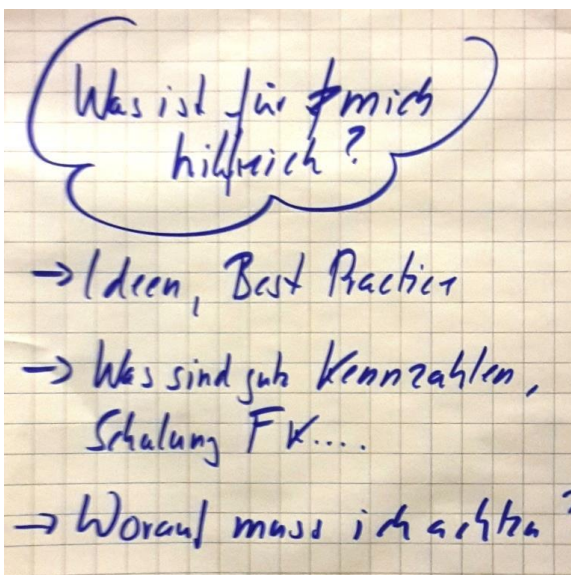 Was ist für mich
hilfreich?
→ Ideen, Best Practice
→ Was sind gute Kennzahlen,
Schulung FK....
→ Worauf muss ich achten?